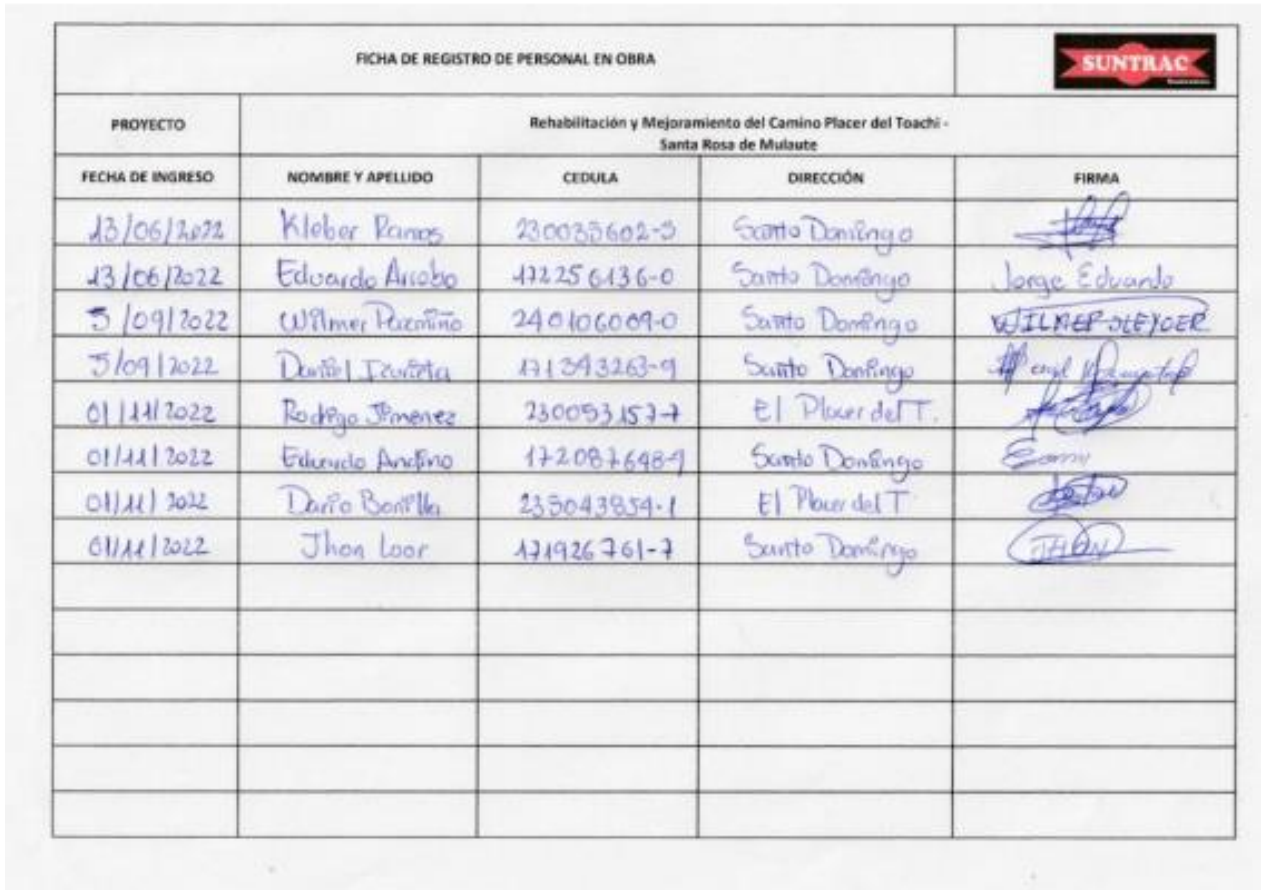 FICHA DE REGISTRO DE PERSONAL EN OBRA
SUNTRAC
PROYECTO
Rehabilitación y Mejoramiento del Camino Placer del Toachi -
Santa Rosa de Mulaute
FECHA DE INGRESO NOMBRE Y APELLIDO CEDULA DIRECCIÓN FIRMA
13/06/2022 Kleber Ramos Santo Domingo
13/06/2022 Eduardo Arrobo 172256136-0 Santo Domingo Jorge Eduardo
5/09/2022 Wilmer Pazmiño 240106009-0 Santo Domingo WILMER
5/09/2022 Daniel 171343263-9 Santo Domingo
01/11/2022 Rodrigo Jimenez 230053157-7 El Placer del T.
01/11/2022 Eduardo Andino Santo Domingo
01/11/2022 Dario Bonilla 235043854-1 El Placer del T
01/11/2022 Jhon Loor 171926761-7 Santo Domingo JHON